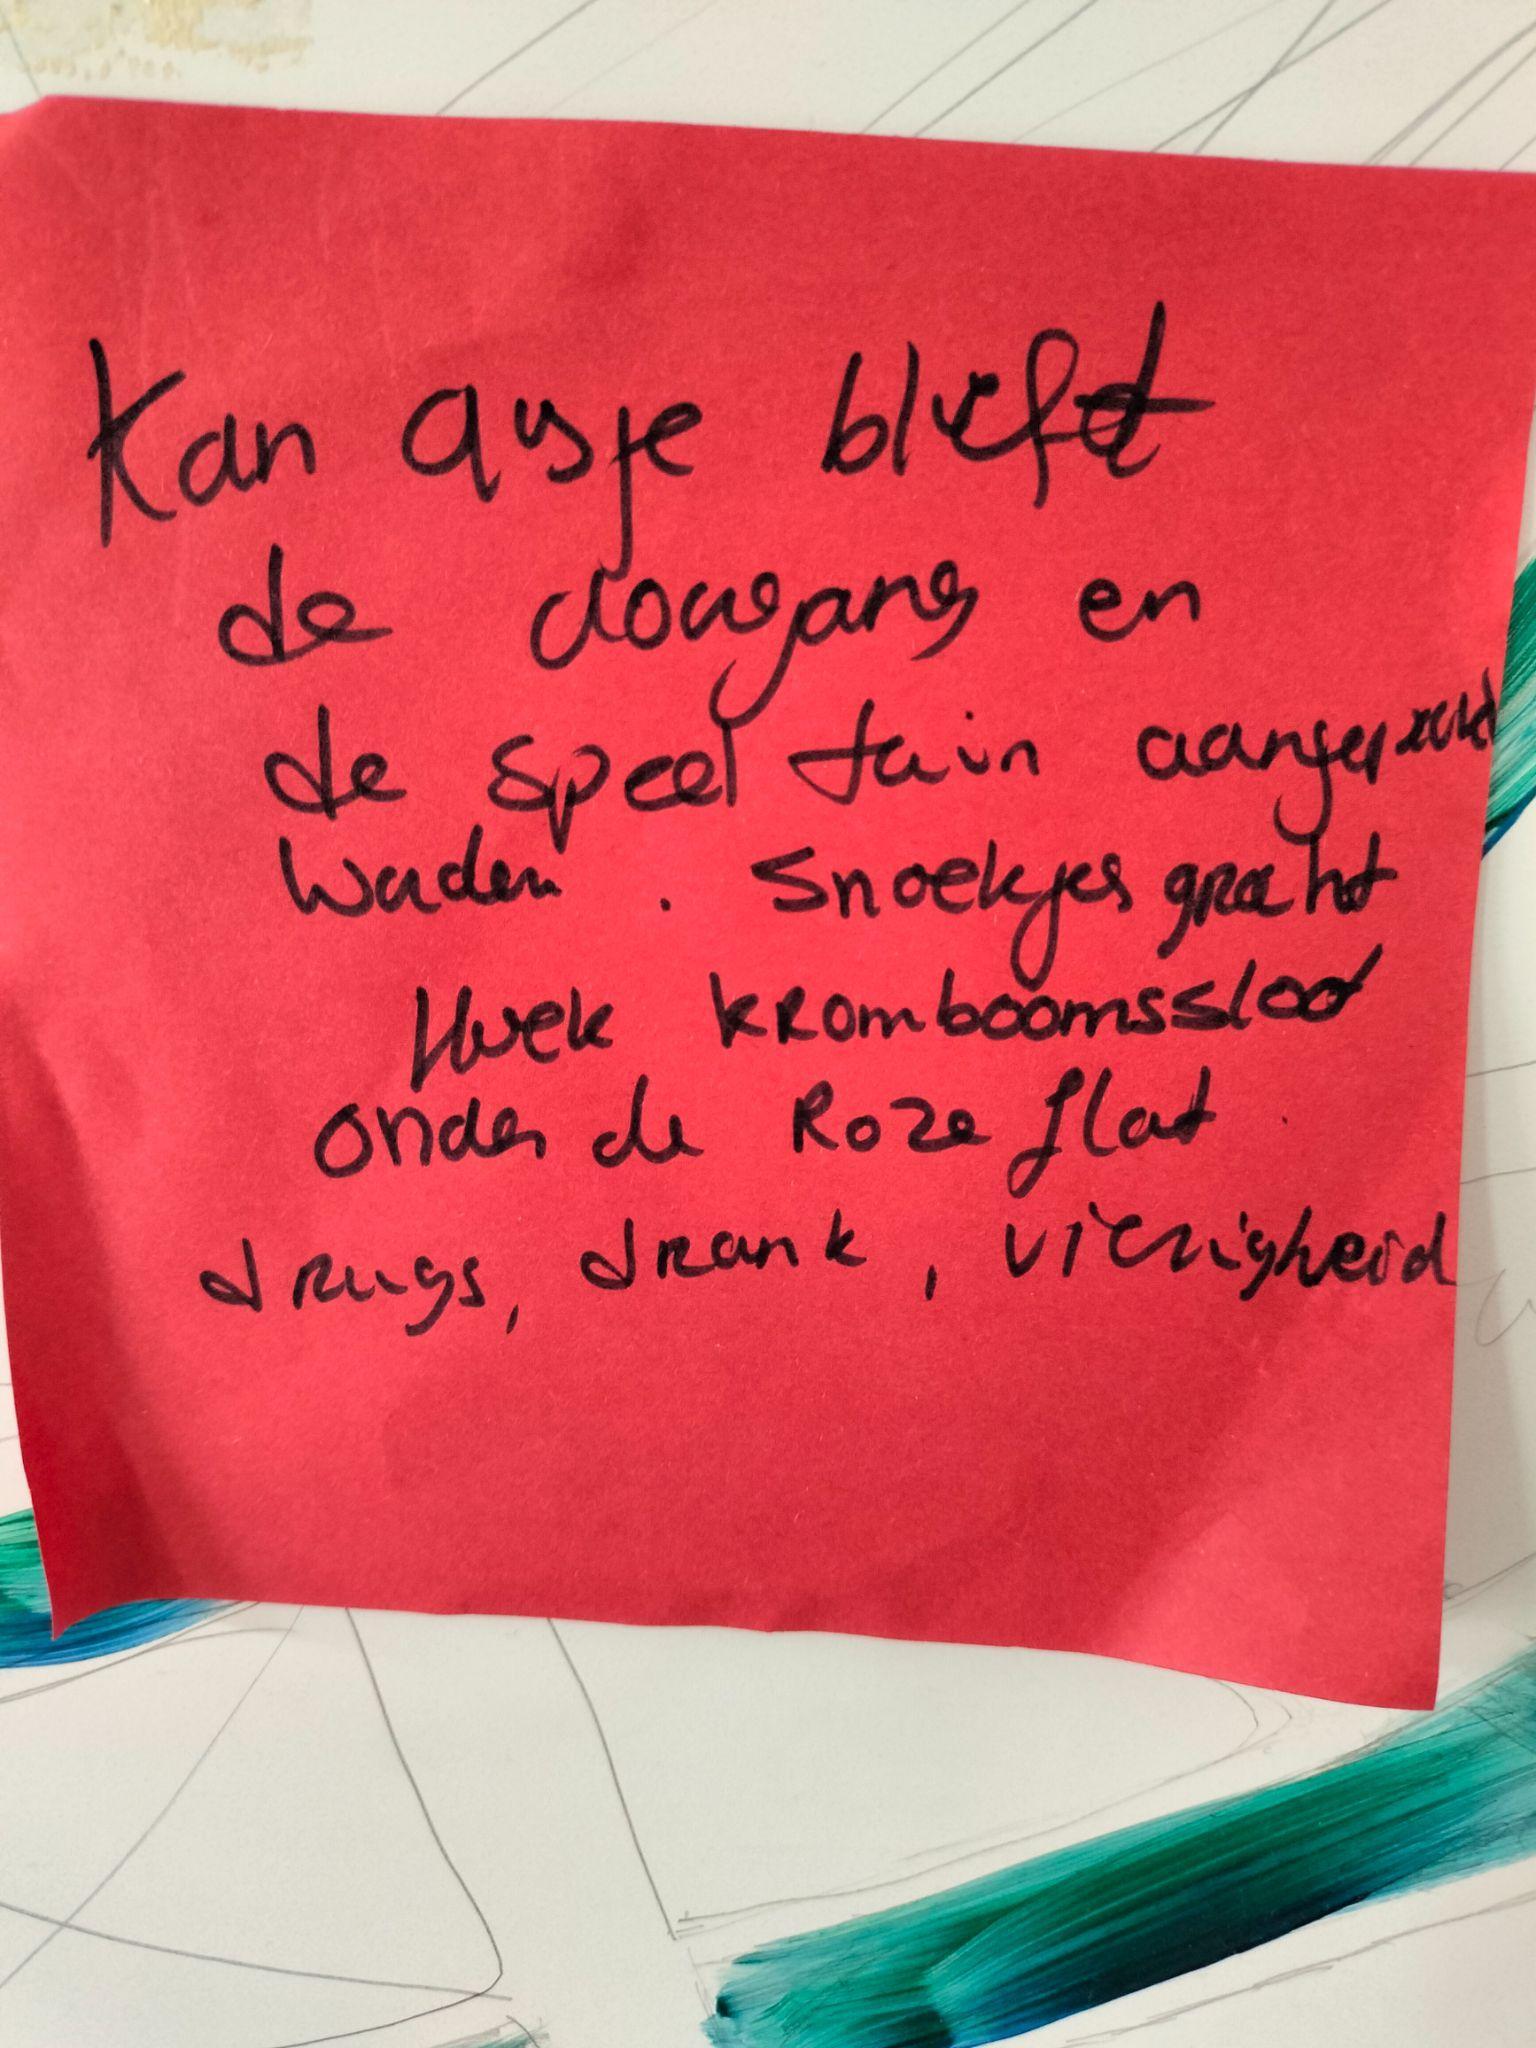 Kan ausje blieft
de doorgang en
de speel tuin aangepakt
worden. Snoekjesgracht
Hoek kromboomssloot
onder de Roze flat.
drugs, drank, viezigheid